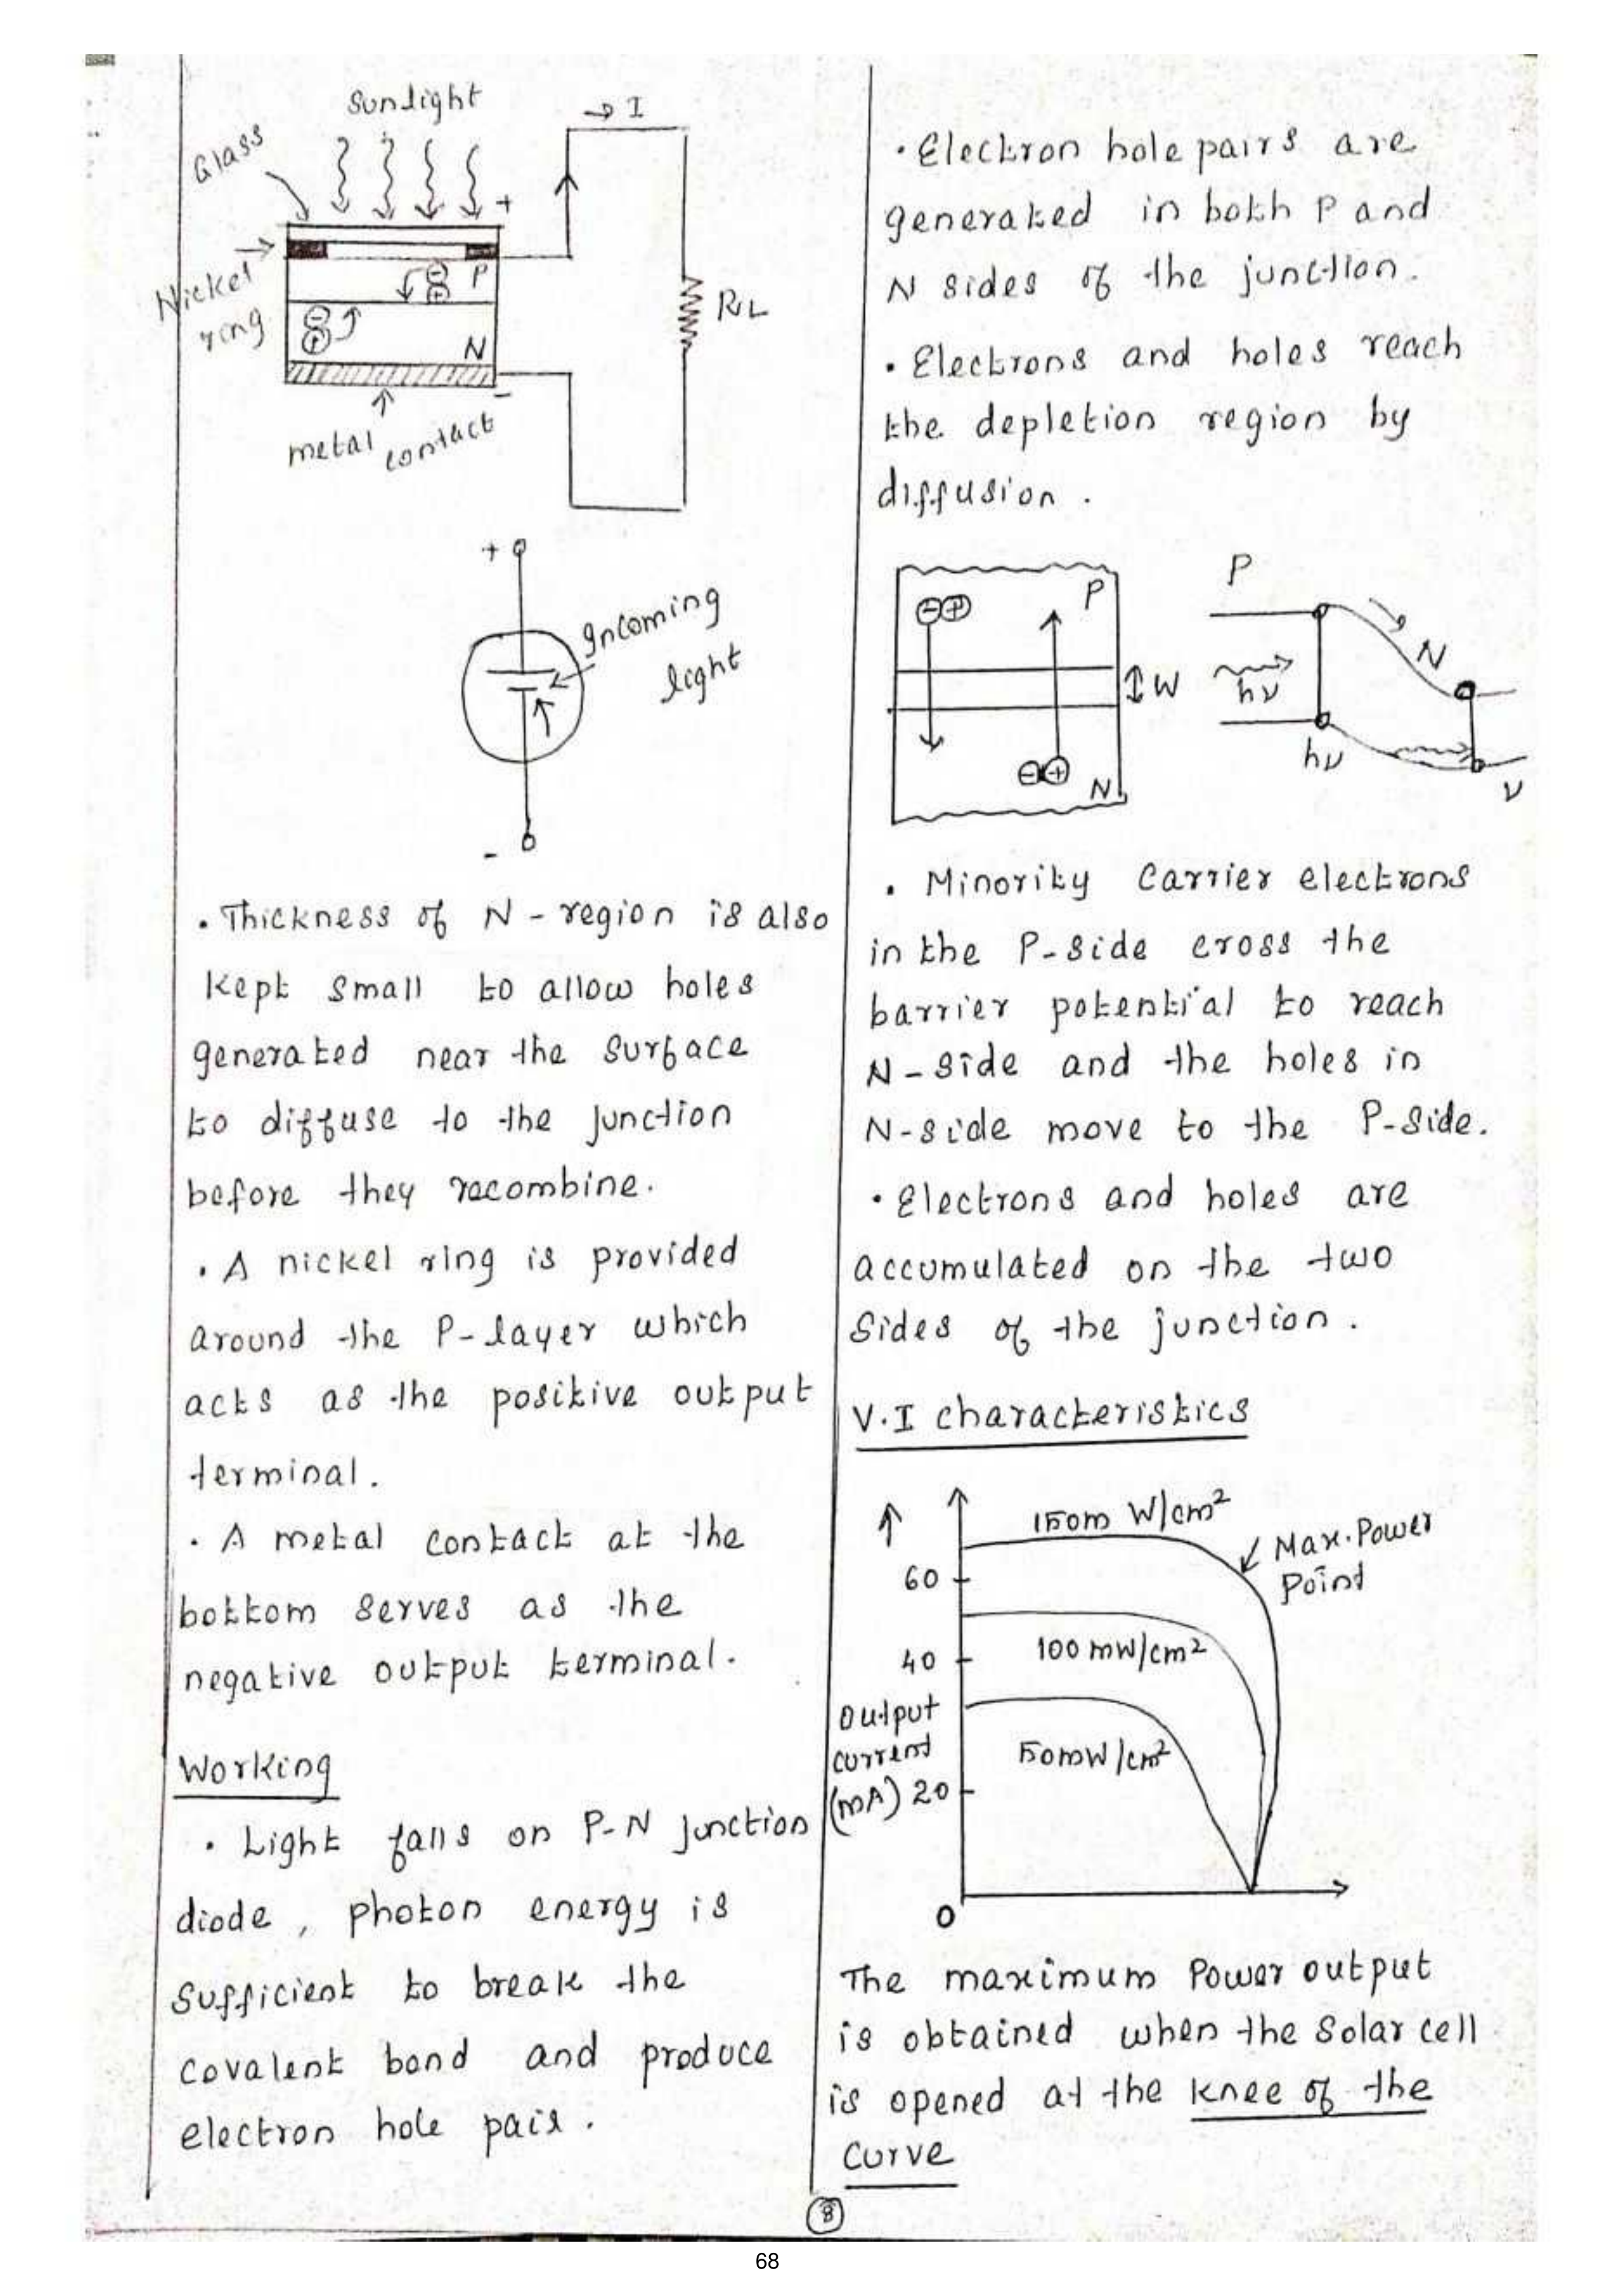 Sunlight
→ I
Glass
+
Nickel
ring
P
N
RL
-
metal contact
+
Incoming
light
-
. Thickness of N - region is also
kept small to allow holes
generated near the surface
to diffuse to the junction
before they recombine.
. A nickel ring is provided
around the P- layer which
acts as the positive output
terminal.
. A metal contact at the
bottom serves as the
negative output terminal.
Working
. Light falls on P-N junction
diode , photon energy is
sufficient to break the
covalent bond and produce
electron hole pair .
. Electron hole pairs are
generated in both P and
N sides of the junction.
. Electrons and holes reach
the depletion region by
diffusion .
P
W
N
P
N
hν
hν
ν
. Minority Carrier electrons
in the P-side cross the
barrier potential to reach
N-side and the holes in
N-side move to the P-side.
. Electrons and holes are
accumulated on the two
sides of the junction .
V.I characteristics
150m W/cm²
Max.Power
Point
60
100 mW/cm²
40
Output
current
(mA)
50mW/cm²
20
0
The maximum Power output
is obtained when the solar cell
is opened at the knee of the
curve
8
68